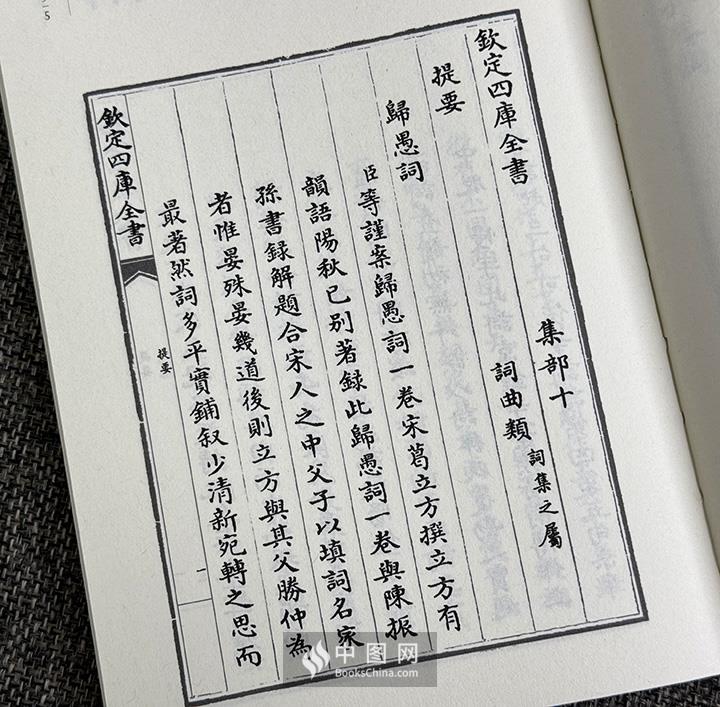 欽定四庫全書
集部十
提要
詞曲類
詞集之屬
歸愚詞
臣等謹案歸愚詞一卷宋葛立方撰立方有
韻語陽秋已別著録此歸愚詞一卷與陳振
孫書録解題合宋人之中父子以填詞名家
者惟晏殊晏幾道後則立方與其父勝仲為
最著然詞多平實鋪叙少清新宛轉之思而
欽定四庫全書
提要
一
中图网
BooksChina.com